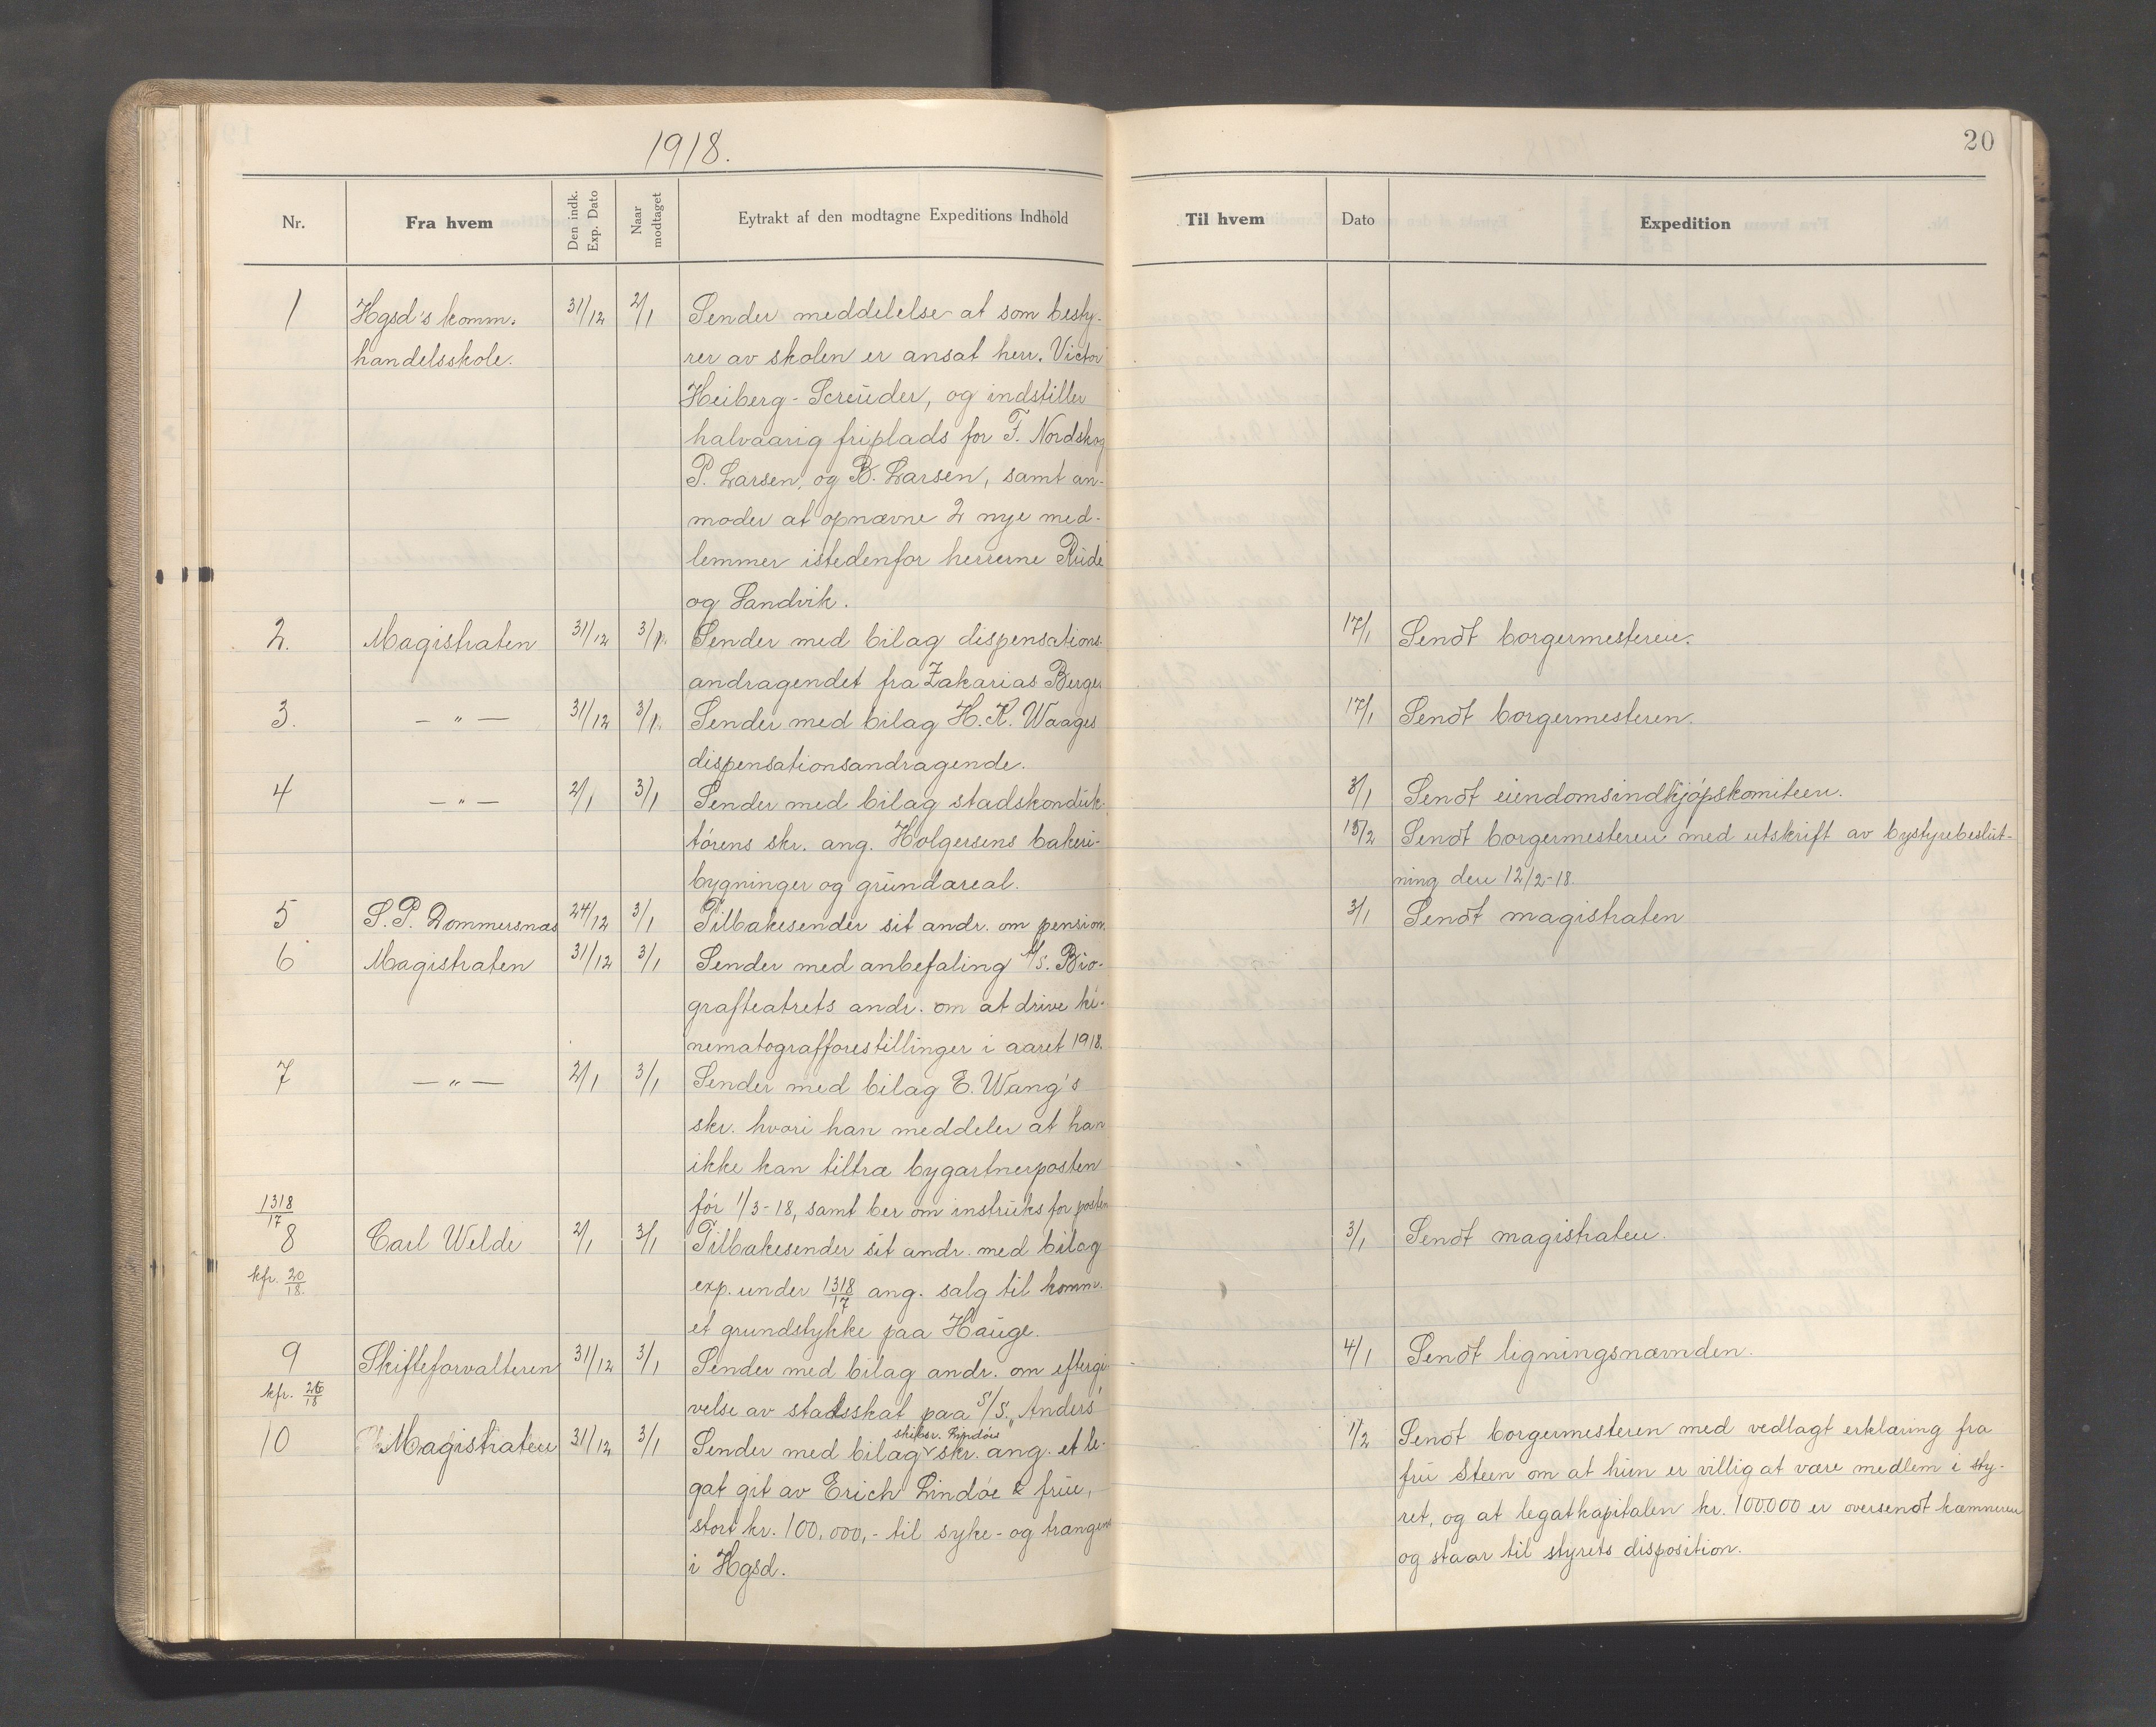 1918.
Nr.
Fra hvem
Den indk. Exp. Dato
Naar modtaget
Eytrakt af den modtagne Expeditions Indhold
1
Hgsd's komm.
handelsskole.
31/12
2/1
Sender meddelelse at som besty-
rer av skolen er ansat herr. Victor
Heiberg-Screuder, og indstiller
halvaarig friplads for F. Nordskog
P. Larsen, og B. Larsen, samt an-
moder at opnævne 2 nye med-
lemmer istedenfor herrerne Rude
og Sandvik.
2.
Magistraten
31/12
3/1.
Sender med bilag dispensations-
andragendet fra Zakarias Berge.
3.
— " —
31/12
3/1.
Sender med bilag H. K. Waages
dispensationsandragende.
4
— " —
2/1
3/1
Sender med bilag stadskonduk-
tørens skr. ang. Holgersens bakeri-
bygninger og grundareal.
5
S. P. Dommersnæs
24/12
3/1
Tilbakesender sit andr. om pension.
6
Magistraten
31/12
3/1
Sender med anbefaling A/S. Bio-
grafteatrets andr. om at drive ki-
nematografforestillinger i aaret 1918.
7
— " —
2/1
3/1
Sender med bilag E. Wang's
skr. hvori han meddeler at han
ikke kan tiltræ bygartnerposten
før 1/3-18, samt ber om instruks for posten
1318/17
8
kfr. 20/18.
Carl Welde
2/1
3/1
Tilbakesender sit andr. med bilag
exp. under 1318/17 ang. salg til komm.
et grundstykke paa Hauge.
9
kfr. 26/18
Skifteforvalteren
31/12
3/1
Sender med bilag andr. om eftergi-
velse av stadsskat paa S/S. "Anders"
10
Magistraten
31/12
3/1
skibsr. Lindøes
Sender med bilag skr. ang. et le-
gat git av Erich Lindøe & frue,
stort kr. 100.000,- til syke- og trængende
i Hgsd.
20
Til hvem
Dato
Expedition
17/1
Sendt borgermesteren.
17/1
Sendt borgermesteren.
3/1
Sendt eiendomsindkjøpskomiteen.
15/2
Sendt borgermesteren med utskrift av bystyrebeslut-
ning den 12/2-18.
3/1
Sendt magistraten
3/1
Sendt magistraten.
4/1
Sendt ligningsnævnden.
1/2
Sendt borgermesteren med vedlagt erklæring fra
fru Steen om at hun er villig at være medlem i sty-
ret, og at legatkapitalen kr. 100000 er oversendt kæmneren
og staar til styrets disposition.